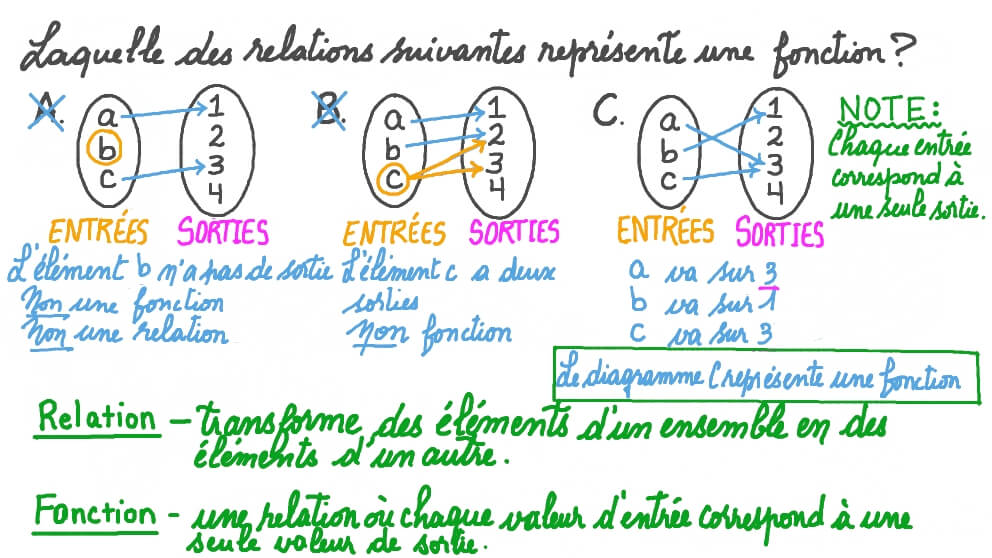 Laquelle des relations suivantes représente une fonction?
A.
a
b
c
1
2
3
4
ENTRÉES SORTIES
B.
a
b
c
1
2
3
4
ENTRÉES SORTIES
C.
a
b
c
1
2
3
4
ENTRÉES SORTIES
NOTE:
Chaque entrée
correspond à
une seule sortie.
L'élément b n'a pas de sortie
Non une fonction
Non une relation
L'élément c a deux
sorties
Non fonction
a va sur 3
b va sur 1
c va sur 3
Le diagramme C représente une fonction
Relation – transforme des éléments d'un ensemble en des
éléments d'un autre.
Fonction - une relation où chaque valeur d'entrée correspond à une
seule valeur de sortie.